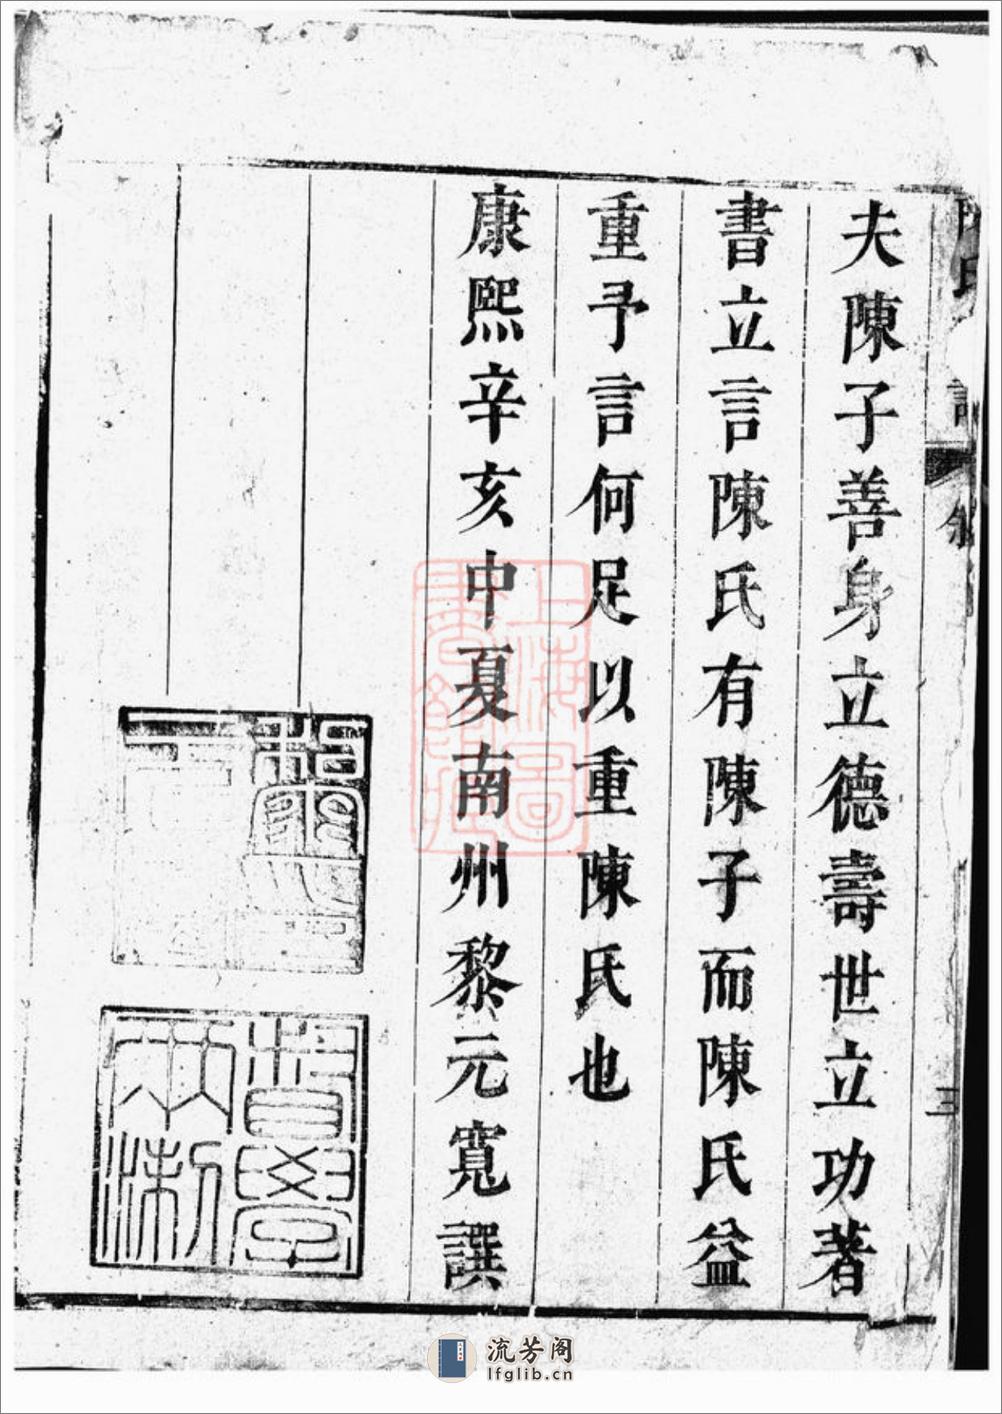 夫陳子善身立德壽世立功著
書立言陳氏有陳子而陳氏益
重予言何足以重陳氏也
康熙辛亥中夏南州黎元寬譔
督學
兩浙
上海圖
書館藏
三
流芳阁
lfglib.cn